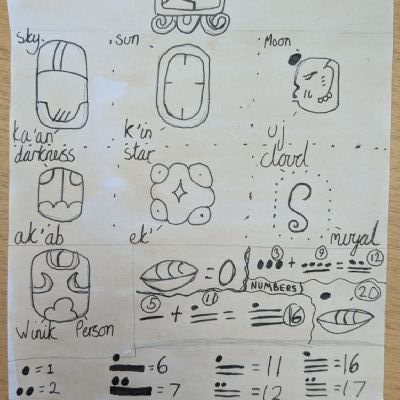 sky sun Moon
ka'an k'in uj
darkness star cloud
ak'ab ek' muyal
= 0
3 + 9 = 12
NUMBERS
5 + 11 = 16
20
Winik Person
= 1 = 6 = 11 = 16
= 2 = 7 = 12 = 17